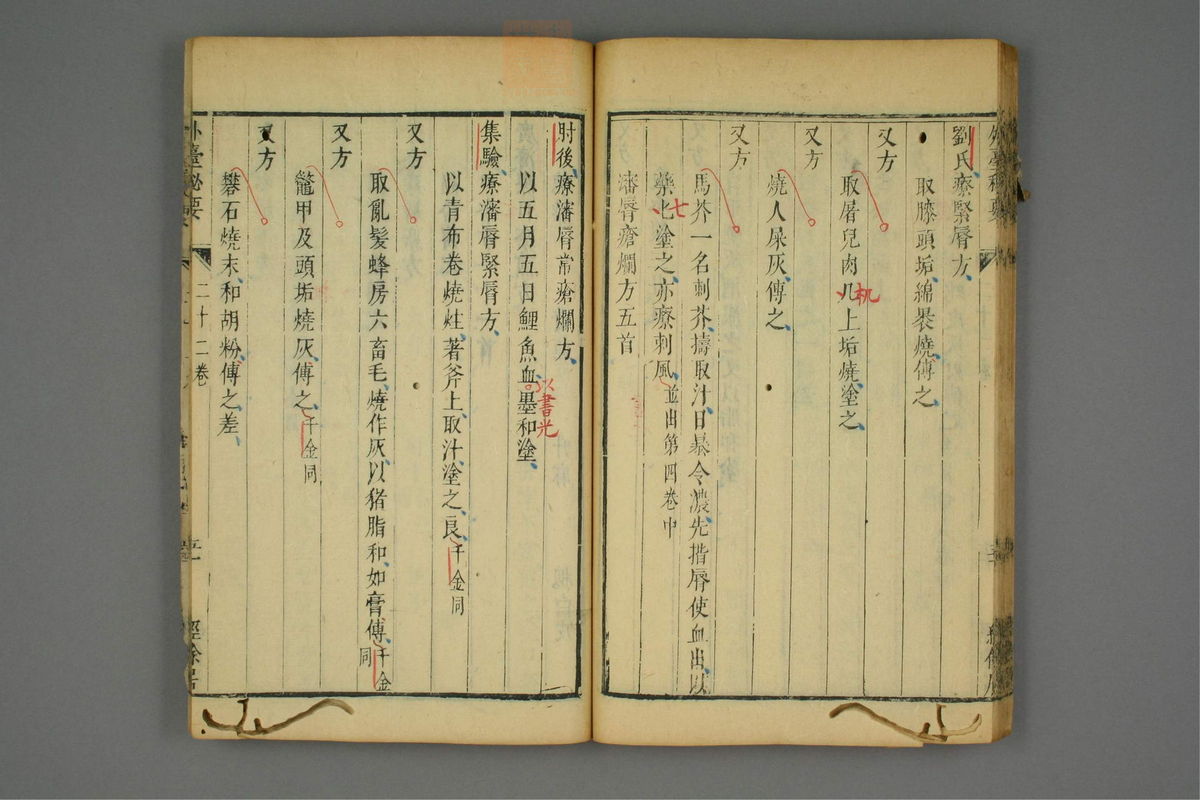 劉氏療緊脣方
取膝頭垢綿裹燒傅之
又方
取屠兒肉几上垢燒塗之
机
又方
燒人屎灰傅之
又方
馬芥一名刺芥擣取汁日暴令濃先揩脣使血出以
藥匕塗之亦療刺風並出第四卷中
七
瀋脣瘡爛方五首
肘後療瀋脣常瘡爛方
以五月五日鯉魚血墨和塗
以書光
集驗療瀋脣緊脣方
以青布卷燒炷著斧上取汁塗之良千金同
又方
取亂髮蜂房六畜毛燒作灰以猪脂和如膏傅千金同
又方
鼈甲及頭垢燒灰傅之千金同
又方
礬石燒末和胡粉傅之差
外臺秘要
二十二卷
經餘居